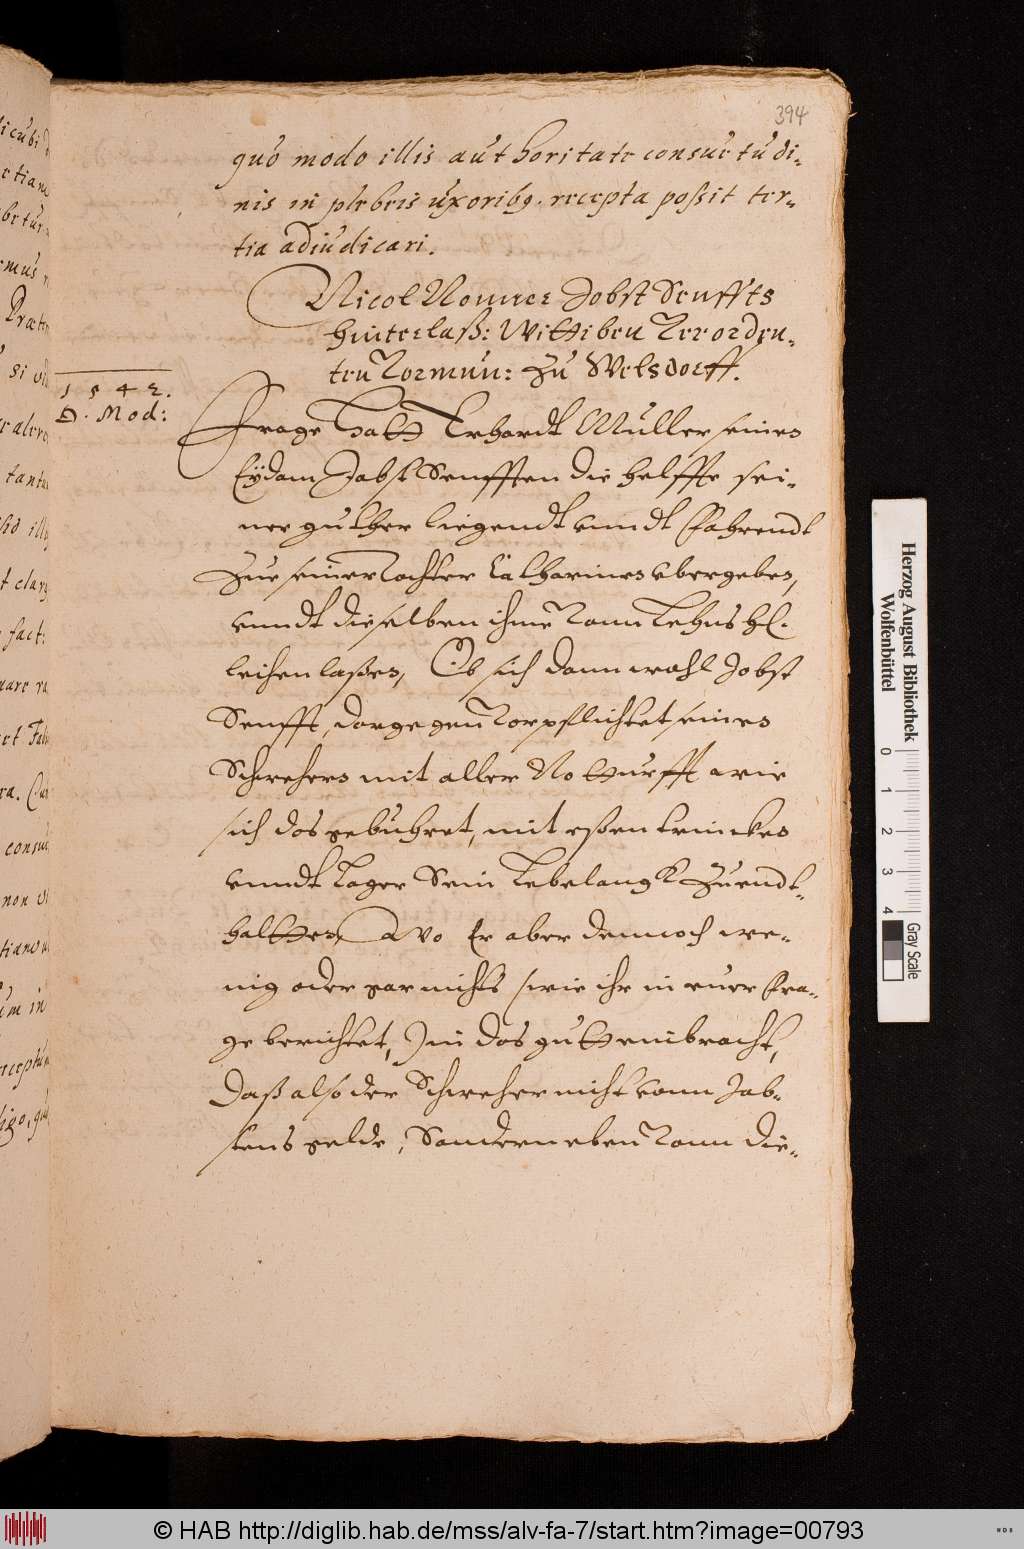 394
quo modo illis authoritate consuetudi-
nis in plebeis uxoribq. recepta possit ter-
tia adiudicari.
Nicol Nonnee Jobst Senffts
hinterlaß: Wittiben Verorden-
ten Vormun: Zu Welsdorff.
1542.
D. Mod:
Frage Hatt Erhardt Müller seines
Eÿdam Jobst Senfften die helffte sei-
ner guther liegendt unndt Fahrendt
Zue seiner Tochter Catharines ubergeben,
unndt dieselben ihme Vonn Lehns hl.
leihen laßen, Ob sich dann wohl Jobst
Senfft, dargegen Vorpflichtet seines
Schwehers mit aller Notturfft wie
sich das gebuhret, mit eßen trincken
unndt Lager Sein Lebelangk Zuendt-
haltten, Wo Er aber dennoch we-
nig oder gar nichts (wie ihr in euer Fra-
ge berichtet,) in das gutt einbracht,
Daß also der Schweher nicht vonn Job-
stens gelde, Sondern eben Vonn die-
Herzog August Bibliothek
Wolfenbüttel
0 1 2 3 4
Gray Scale
© HAB http://diglib.hab.de/mss/alv-fa-7/start.htm?image=00793